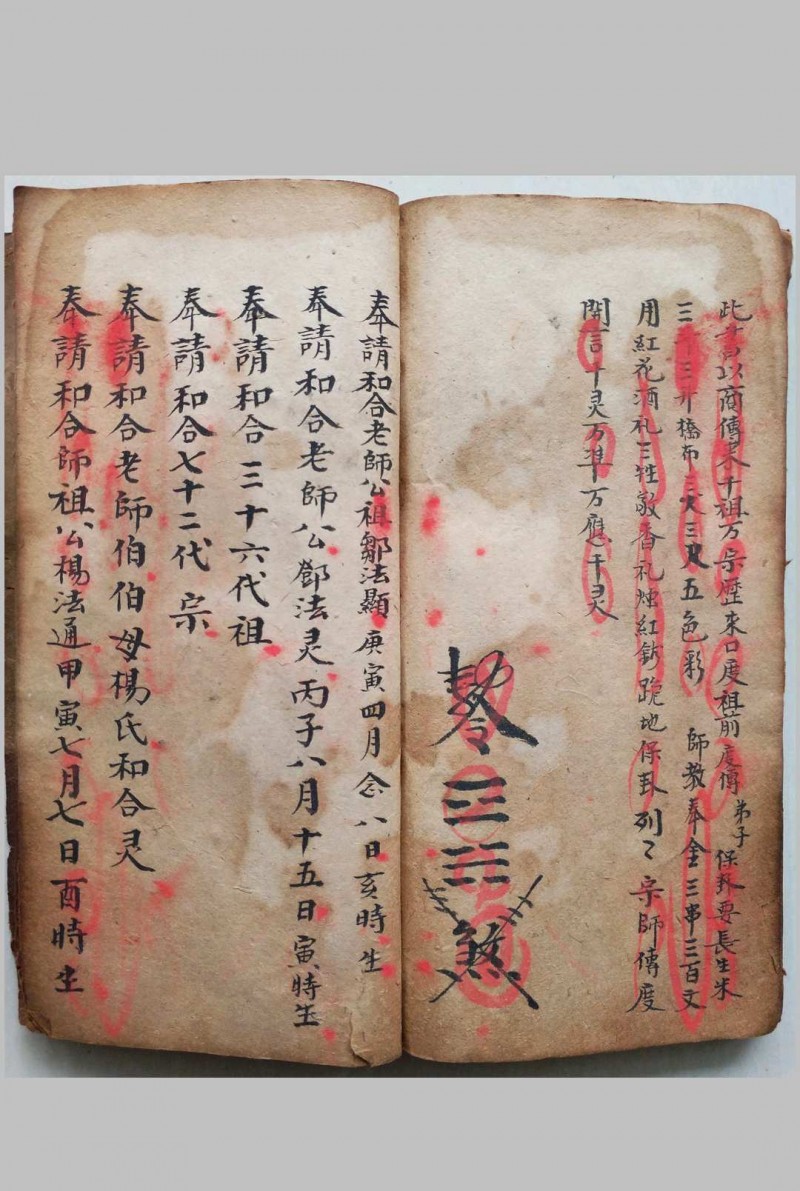 此書以商傳來千祖万宗歷來口度祖前度傳 弟子 保卦要長生米
三斤三升橋布三丈三尺五色彩 師教奉金三串三百文
用紅花酒礼三牲敬香礼烛紅鈔跪地保卦列〻宗師傳度
開言千灵万準万應千灵
奉請和合老師公祖鄒法顯庚寅四月念八日亥時生
奉請和合老師公鄧法灵丙子八月十五日寅時生
奉請和合三十六代祖
奉請和合七十二代宗
奉請和合老師伯伯母楊氏和合灵
奉請和合師祖公楊法通甲寅七月七日酉時生